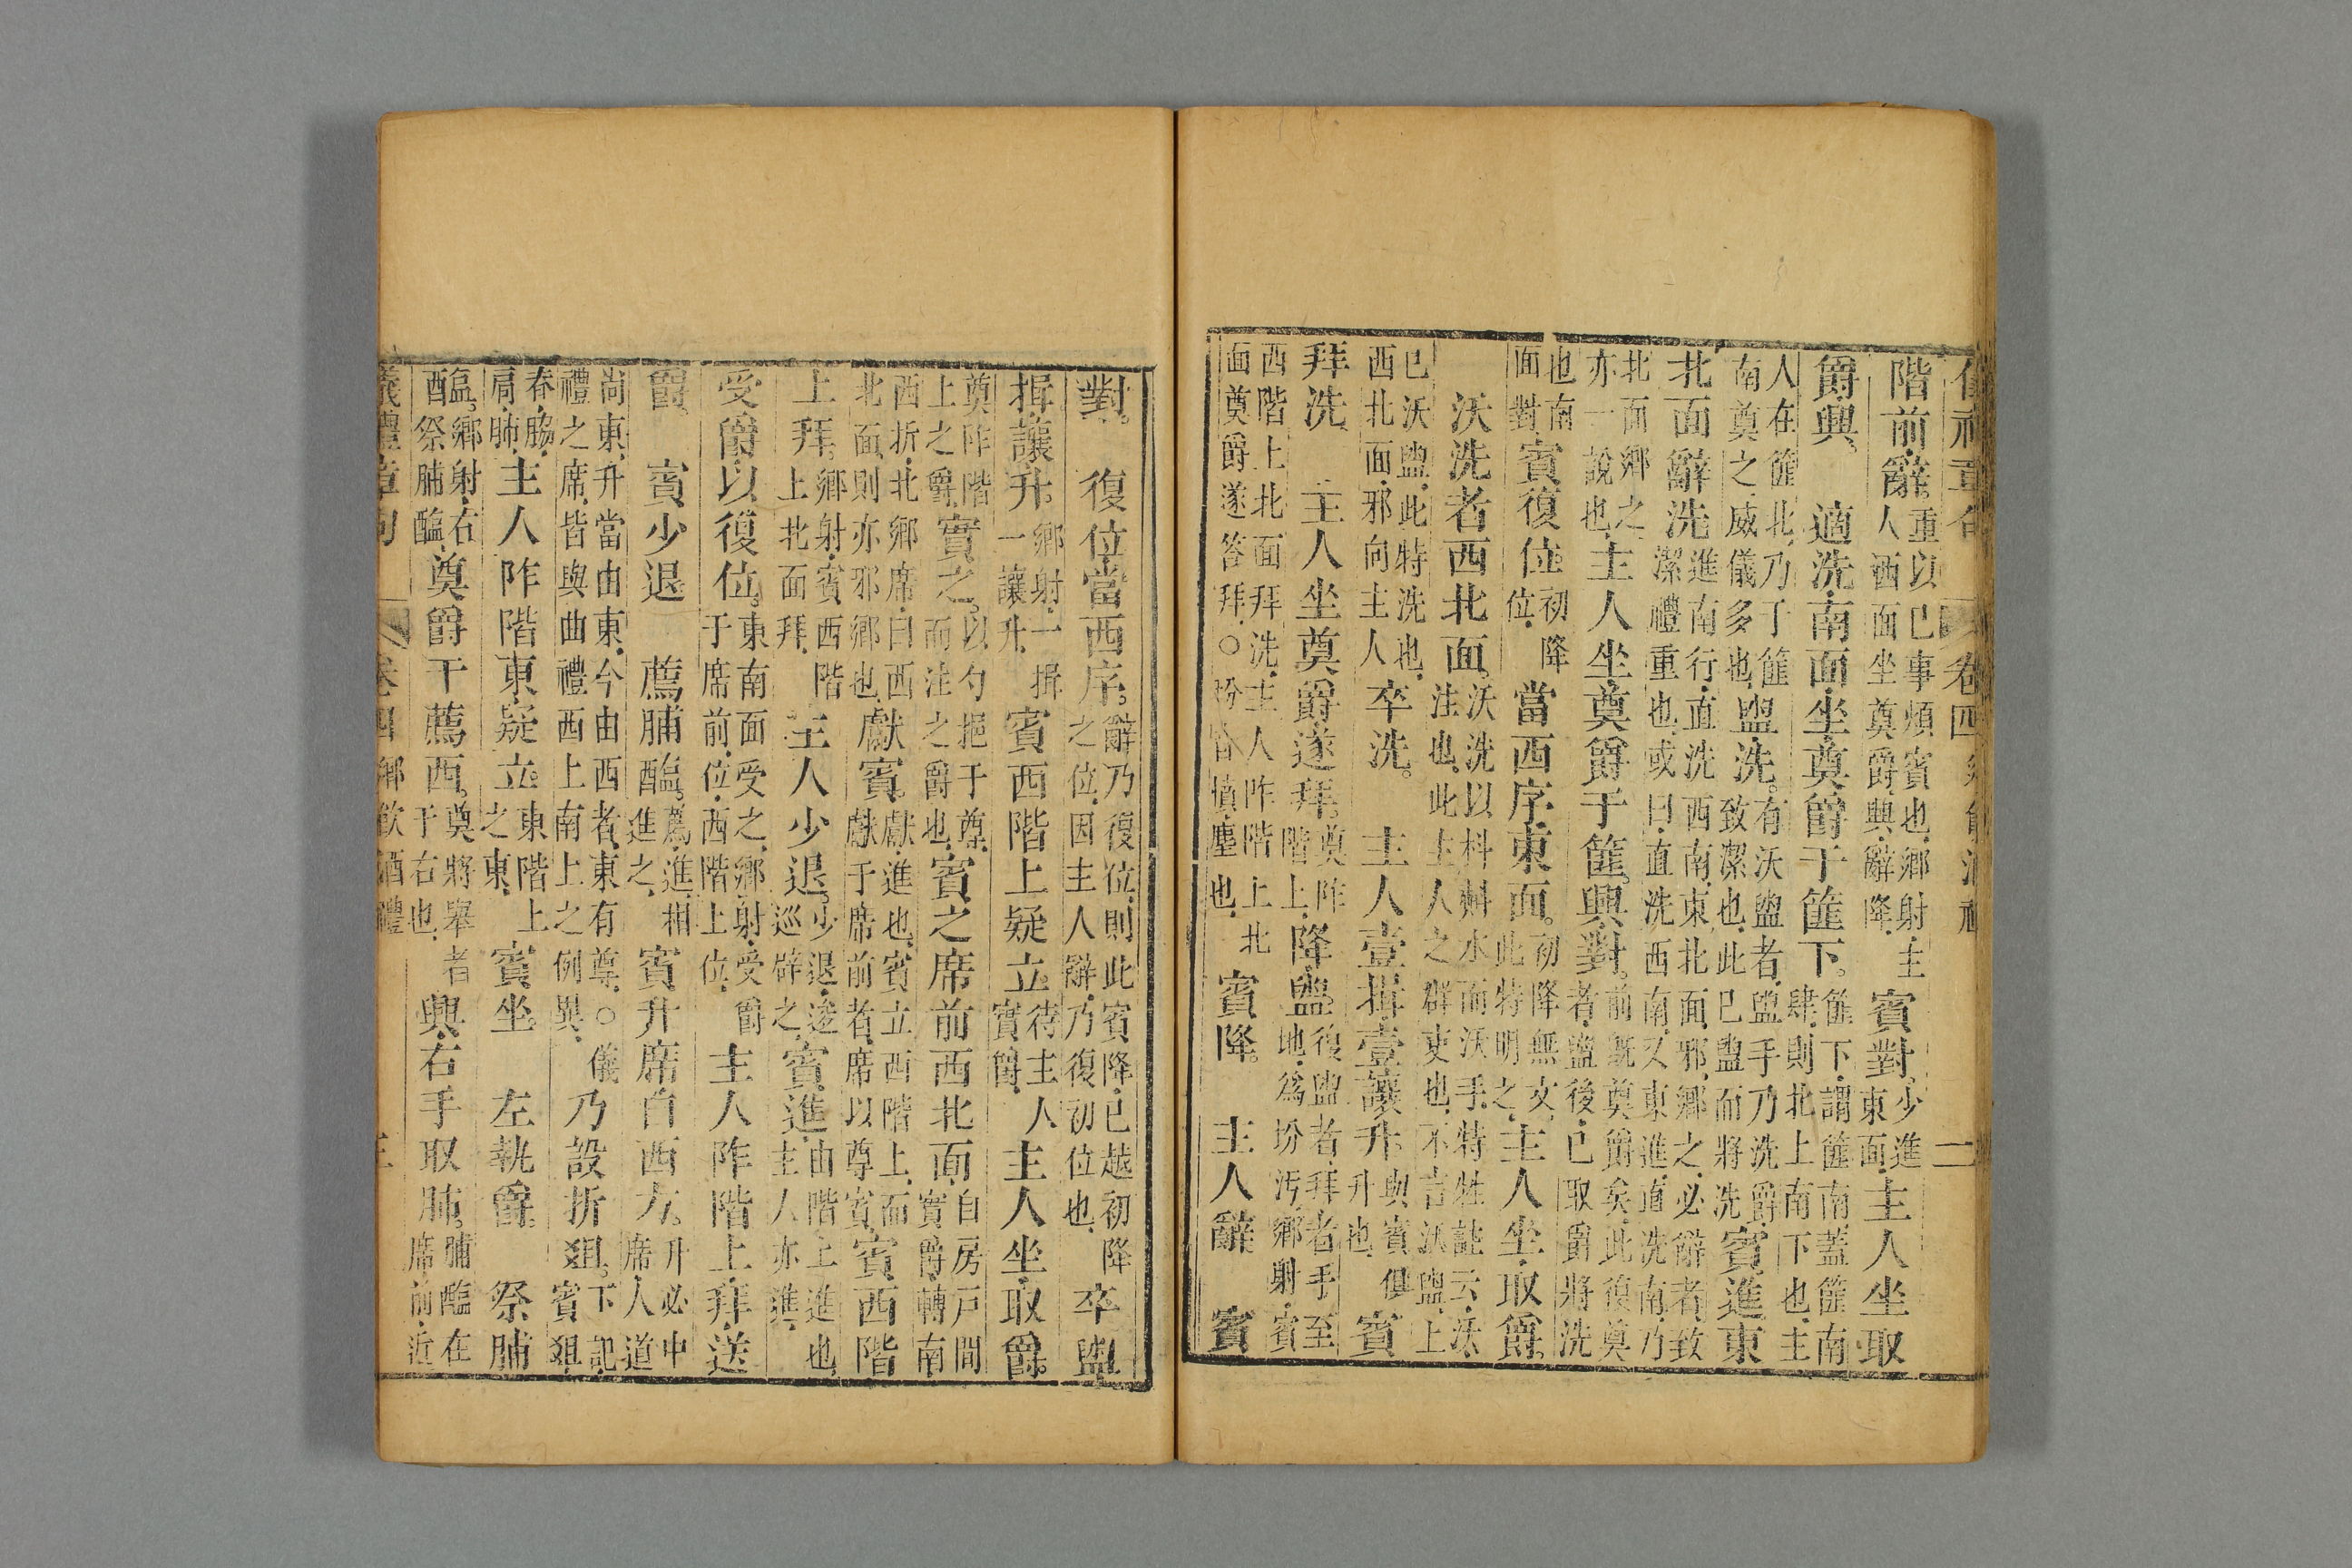 儀禮章句 卷四 鄉飲酒禮 二
階前辭重以已事煩賓也鄉射主人西面坐奠爵興辭降賓對少進東面主人坐取
爵興適洗南面坐奠爵于篚下篚下謂篚南蓋篚南肆則北上南下也主
人在篚北乃于篚南奠之威儀多也盥洗有沃盥者盥手乃洗爵致潔也此已盥而將洗賓進東
北面辭洗進南行直洗西南東北面邪鄉之必辭者致潔禮重也或曰直洗西南又東進直洗南乃
北面鄉之亦一說也主人坐奠爵于篚興對前既奠爵矣此復奠者盥後已取爵將洗
也南面對賓復位初降位當西序東面初降無文此特明之主人坐取爵
沃洗者西北面沃洗以枓㪺水而沃手特牲註云沃注也此主人之群吏也不言沃盥上
已沃盥此特洗也西北面邪向主人卒洗主人壹揖壹讓升與賓俱升也賓
拜洗主人坐奠爵遂拜奠阼階上降盥復盥者拜者手至地為坋汚鄉射賓
西階上北面拜洗主人阼階上北面奠爵遂答拜○坋音憤塵也賓降主人辭賓
對復位當西序辭乃復位則此賓降已越初降之位因主人辭乃復初位也卒盥
揖讓升鄉射一揖一讓升賓西階上疑立待主人實爵主人坐取爵
奠阼階上之爵實之以勺挹于尊而注之爵也賓之席前西北面自房戶間實爵轉南
西折北鄉席曰西北面則亦邪鄉也獻賓獻進也賓立西階上而獻于席前者席以尊賓賓西階
上拜鄉射賓西階上北面拜主人少退少退逡巡辟之賓進由階上進也主人亦進
受爵以復位東南面受之鄉射受爵于席前位西階上位主人阼階上拜送
爵賓少退薦脯醢薦進相進之賓升席自西方升必中席人道
尚東升當由東今由西者東有尊○儀禮之席皆與曲禮西上南上之例異乃設折俎下記賓俎
脊脇肩肺主人阼階東疑立東階上之東賓坐左執爵祭脯
醢鄉射右祭脯醢奠爵于薦西奠將舉者于右也興右手取肺脯醢在席前近
儀禮章句 卷四 鄉飲酒禮 三